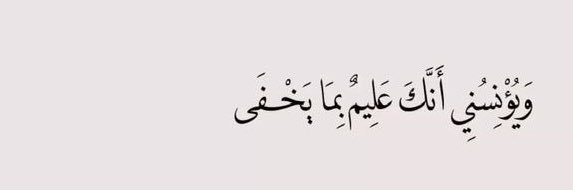 وَيُؤْنِسُنِي أَنَّكَ عَلِيمٌ بِمَا يَخْفَى